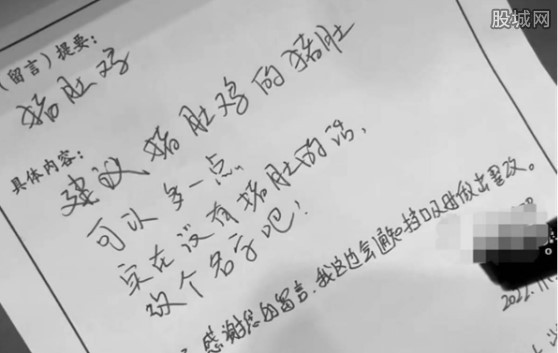 股城网
（留言）提要：
猪肚鸡
具体内容：
建议猪肚鸡的猪肚
可以多一点
实在没有猪肚的话，
改个名字吧！
感谢您的留言，我这边会通知档口及时做出整改。
2022.11